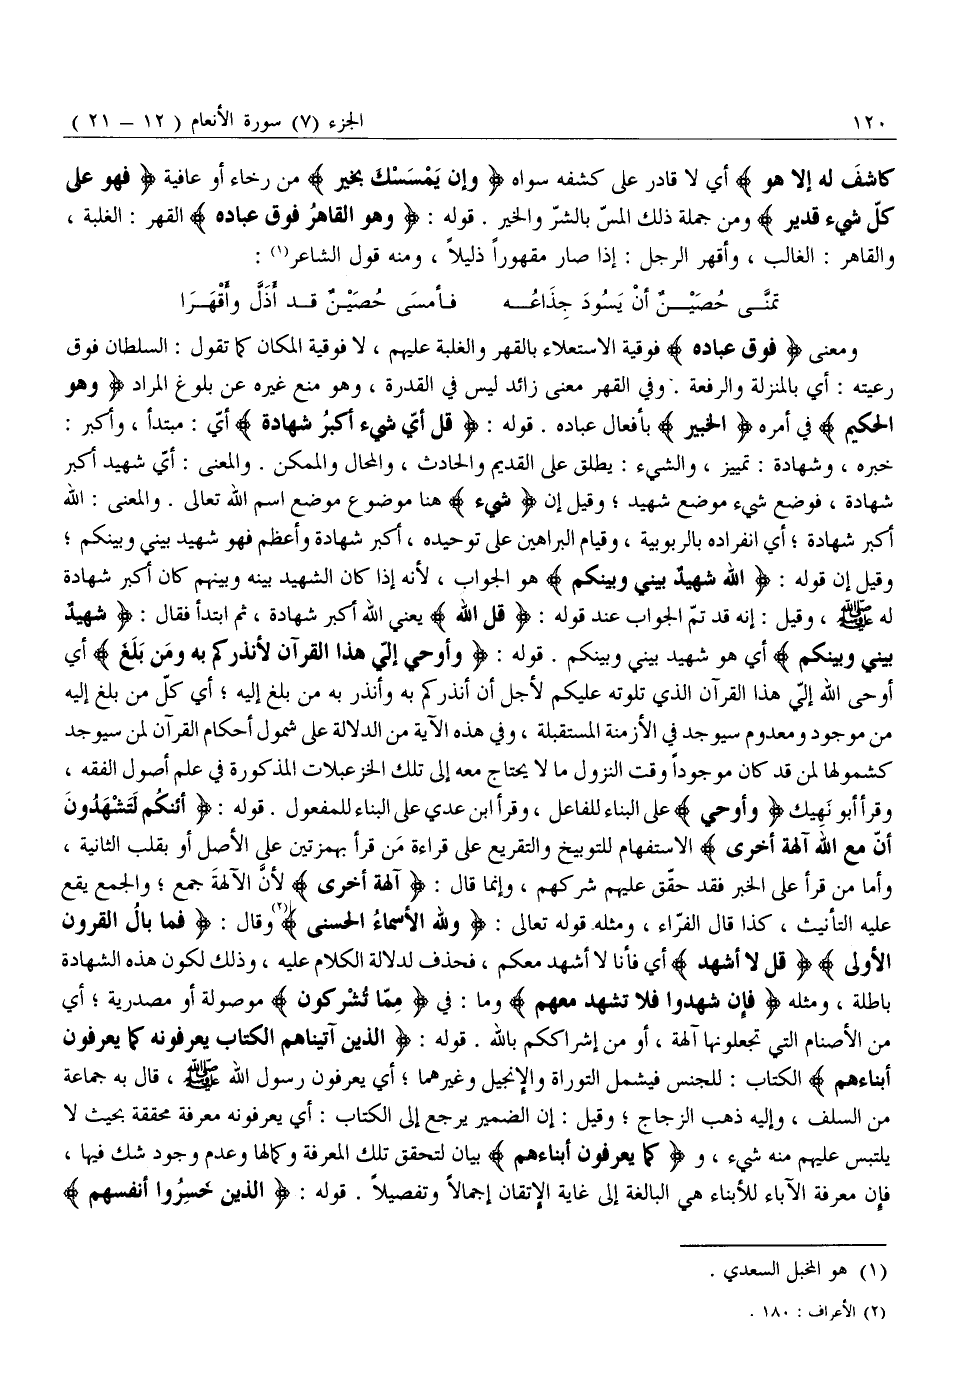 ١٢٠ الجزء (٧) سورة الأنعام ( ١٢ – ٢١ )
كاشفَ له إلا هو ﴾ أي لا قادر على كشفه سواه ﴿ وإن يَمْسَسْكَ بخير ﴾ من رخاء أو عافية ﴿ فهو على
كلّ شيء قدير ﴾ ومن جملة ذلك المسّ بالشرّ والخير . قوله : ﴿ وهو القاهرُ فوق عباده ﴾ القهر : الغلبة ،
والقاهر : الغالب ، وأقهر الرجل : إذا صار مقهوراً ذليلاً ، ومنه قول الشاعر(١) :
تمنَّـى حُصَيْــنٌ أنْ يَسُودَ جِذَاعُــه فـأمسَى حُصَيْـنٌ قـد أَذَلَّ وأَقْهَـرَا
ومعنى ﴿ فوق عباده ﴾ فوقية الاستعلاء بالقهر والغلبة عليهم ، لا فوقية المكان كما تقول : السلطان فوق
رعيته : أي بالمنزلة والرفعة . وفي القهر معنى زائد ليس في القدرة ، وهو منع غيره عن بلوغ المراد ﴿ وهو
الحكيم ﴾ في أمره ﴿ الخبير ﴾ بأفعال عباده . قوله : ﴿ قل أيّ شيء أكبرُ شهادة ﴾ أيّ : مبتدأ ، وأكبر :
خبره ، وشهادة : تمييز ، والشيء : يطلق على القديم والحادث ، والمحال والممكن . والمعنى : أيّ شهيد أكبر
شهادة ، فوضع شيء موضع شهيد ؛ وقيل إن ﴿ شيء ﴾ هنا موضوع موضع اسم الله تعالى . والمعنى : الله
أكبر شهادة ؛ أي انفراده بالربوبية ، وقيام البراهين على توحيده ، أكبر شهادة وأعظم فهو شهيد بيني وبينكم ؛
وقيل إن قوله : ﴿ الله شهيدٌ بيني وبينكم ﴾ هو الجواب ، لأنه إذا كان الشهيد بينه وبينهم كان أكبر شهادة
له ﷺ ، وقيل : إنه قد تمّ الجواب عند قوله : ﴿ قل الله ﴾ يعني الله أكبر شهادة ، ثم ابتدأ فقال : ﴿ شهيدٌ
بيني وبينكم ﴾ أي هو شهيد بيني وبينكم . قوله : ﴿ وأوحي إليّ هذا القرآن لأنذركم به ومَن بَلَغَ ﴾ أي
أوحى الله إليّ هذا القرآن الذي تلوته عليكم لأجل أن أنذركم به وأنذر به من بلغ إليه ؛ أي كلّ من بلغ إليه
من موجود ومعدوم سيوجد في الأزمنة المستقبلة ، وفي هذه الآية من الدلالة على شمول أحكام القرآن لمن سيوجد
كشمولها لمن قد كان موجوداً وقت النزول ما لا يحتاج معه إلى تلك الخزعبلات المذكورة في علم أصول الفقه ،
وقرأ أبو نَهيك ﴿ وأوحي ﴾ على البناء للفاعل ، وقرأ ابن عدي على البناء للمفعول . قوله : ﴿ أئنكُم لَتَشْهَدُونَ
أنّ مع الله آلهة أخرى ﴾ الاستفهام للتوبيخ والتقريع على قراءة مَن قرأ بهمزتين على الأصل أو بقلب الثانية ،
وأما من قرأ على الخبر فقد حقّق عليهم شركهم ، وإنما قال : ﴿ آلهة أخرى ﴾ لأنَّ الآلهةَ جمع ؛ والجمع يقع
عليه التأنيث ، كذا قال الفرّاء ، ومثله قوله تعالى : ﴿ ولله الأسماءُ الحسنى ﴾(٢) وقال : ﴿ فما بالُ القرون
الأولى ﴾ ﴿ قل لا أشهد ﴾ أي فأنا لا أشهد معكم ، فحذف لدلالة الكلام عليه ، وذلك لكون هذه الشهادة
باطلة ، ومثله ﴿ فإن شهدوا فلا تشهد معهم ﴾ وما : في ﴿ مِمّا تُشْركون ﴾ موصولة أو مصدرية ؛ أي
من الأصنام التي تجعلونها آلهة ، أو من إشراككم بالله . قوله : ﴿ الذين آتيناهم الكتاب يعرفونه كما يعرفون
أبناءهم ﴾ الكتاب : للجنس فيشمل التوراة والإنجيل وغيرهما ؛ أي يعرفون رسول الله ﷺ ، قال به جماعة
من السلف ، وإليه ذهب الزجاج ؛ وقيل : إن الضمير يرجع إلى الكتاب : أي يعرفونه معرفة محققة بحيث لا
يلتبس عليهم منه شيء ، و ﴿ كما يعرفون أبناءهم ﴾ بيان لتحقق تلك المعرفة وكمالها وعدم وجود شك فيها ،
فإن معرفة الآباء للأبناء هي البالغة إلى غاية الإتقان إجمالاً وتفصيلاً . قوله : ﴿ الذين خَسِرُوا أنفسهم ﴾
(١) هو المخبل السعدي .
(٢) الأعراف : ١٨٠ .